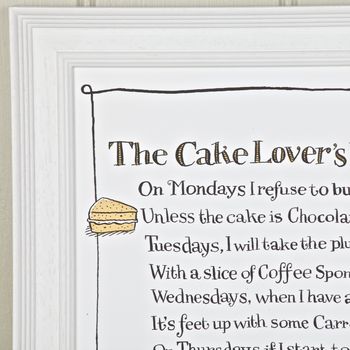 The Cake Lover's
On Mondays I refuse to bu
Unless the cake is Chocola
Tuesdays, I will take the plu
With a slice of Coffee Spon
Wednesdays, when I have a
It's feet up with some Carr
On Thursdays if I start to